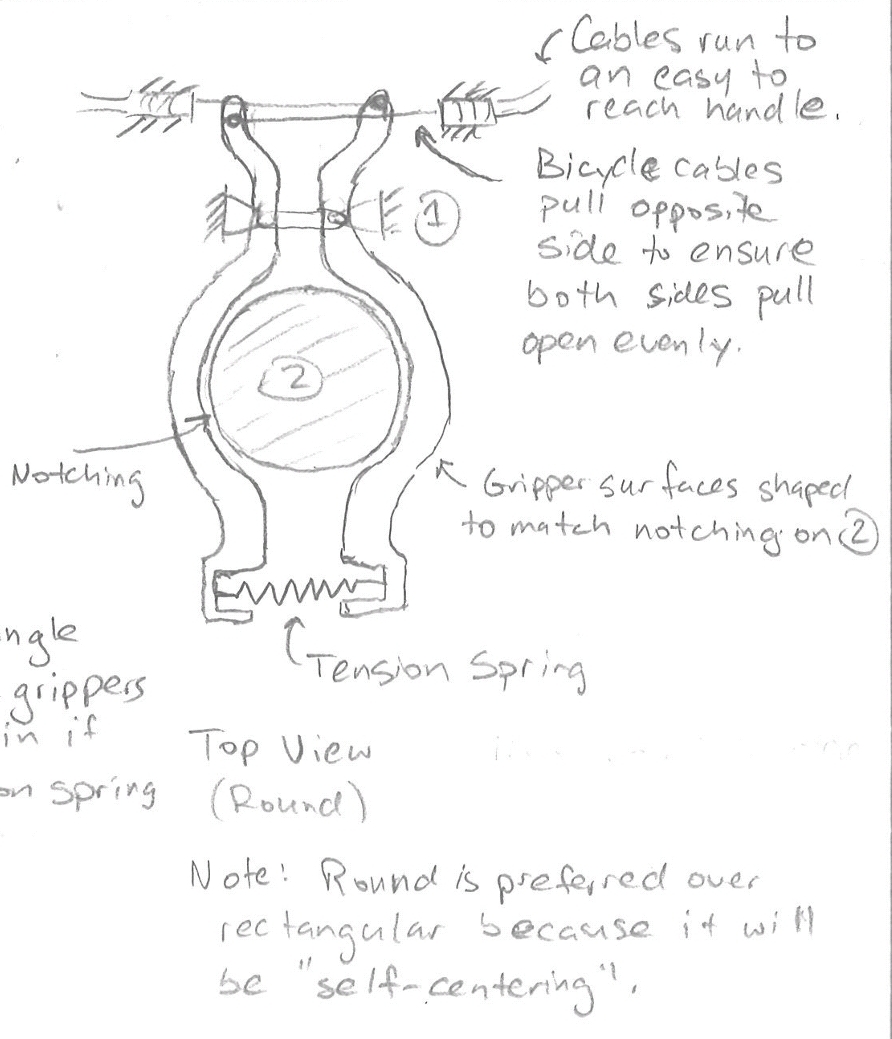 Cables run to
an easy to
reach handle.
Bicycle cables
pull opposite
side to ensure
both sides pull
open evenly.
1
2
Notching
Gripper surfaces shaped
to match notching on 2
Tension Spring
ngle
grippers
in if
on spring
Top View
(Round)
Note: Round is preferred over
rectangular because it will
be "self-centering".